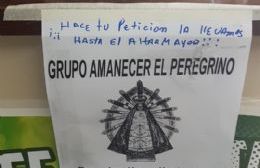 ¡¡ HACE tu PETICION LA LLEVAMOS
HASTA EL ALTAR MAYOR!!!
GRUPO AMANECER EL PEREGRINO